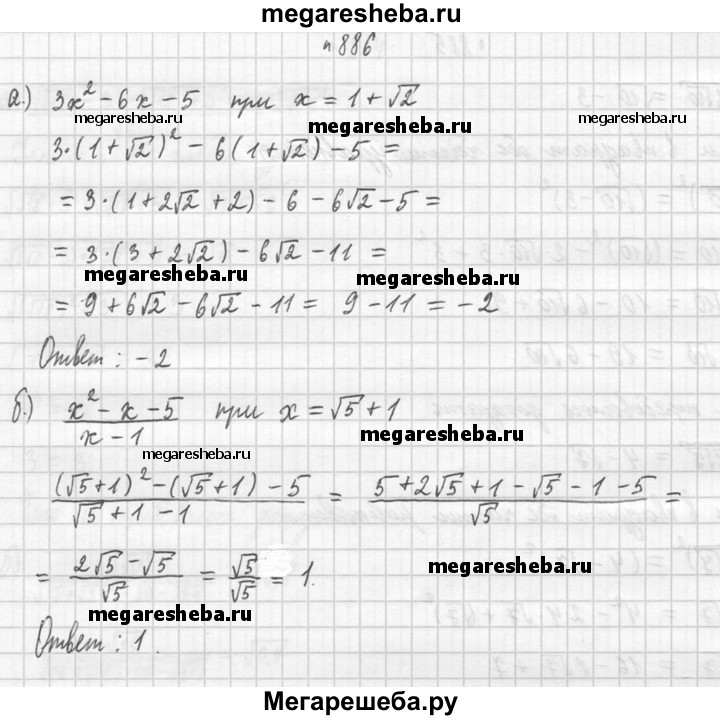 megaresheba.ru
n 886
а.) 3x² - 6x - 5 при x = 1 + √2
megaresheba.ru
megaresheba.ru
megaresheba.ru
3·(1+√2)² - 6(1+√2) - 5 =
= 3·(1+2√2+2) - 6 - 6√2 - 5 =
= 3·(3+2√2) - 6√2 - 11 =
megaresheba.ru
megaresheba.ru
= 9 + 6√2 - 6√2 - 11 = 9 - 11 = -2
Ответ: -2
б.) (x² - x - 5)/(x - 1) при x = √5 + 1
megaresheba.ru
megaresheba.ru
((√5+1)² - (√5+1) - 5)/(√5 + 1 - 1) = (5 + 2√5 + 1 - √5 - 1 - 5)/√5 =
= (2√5 - √5)/√5 = √5/√5 = 1.
megaresheba.ru
megaresheba.ru
Ответ: 1.
Мегарешеба.ру